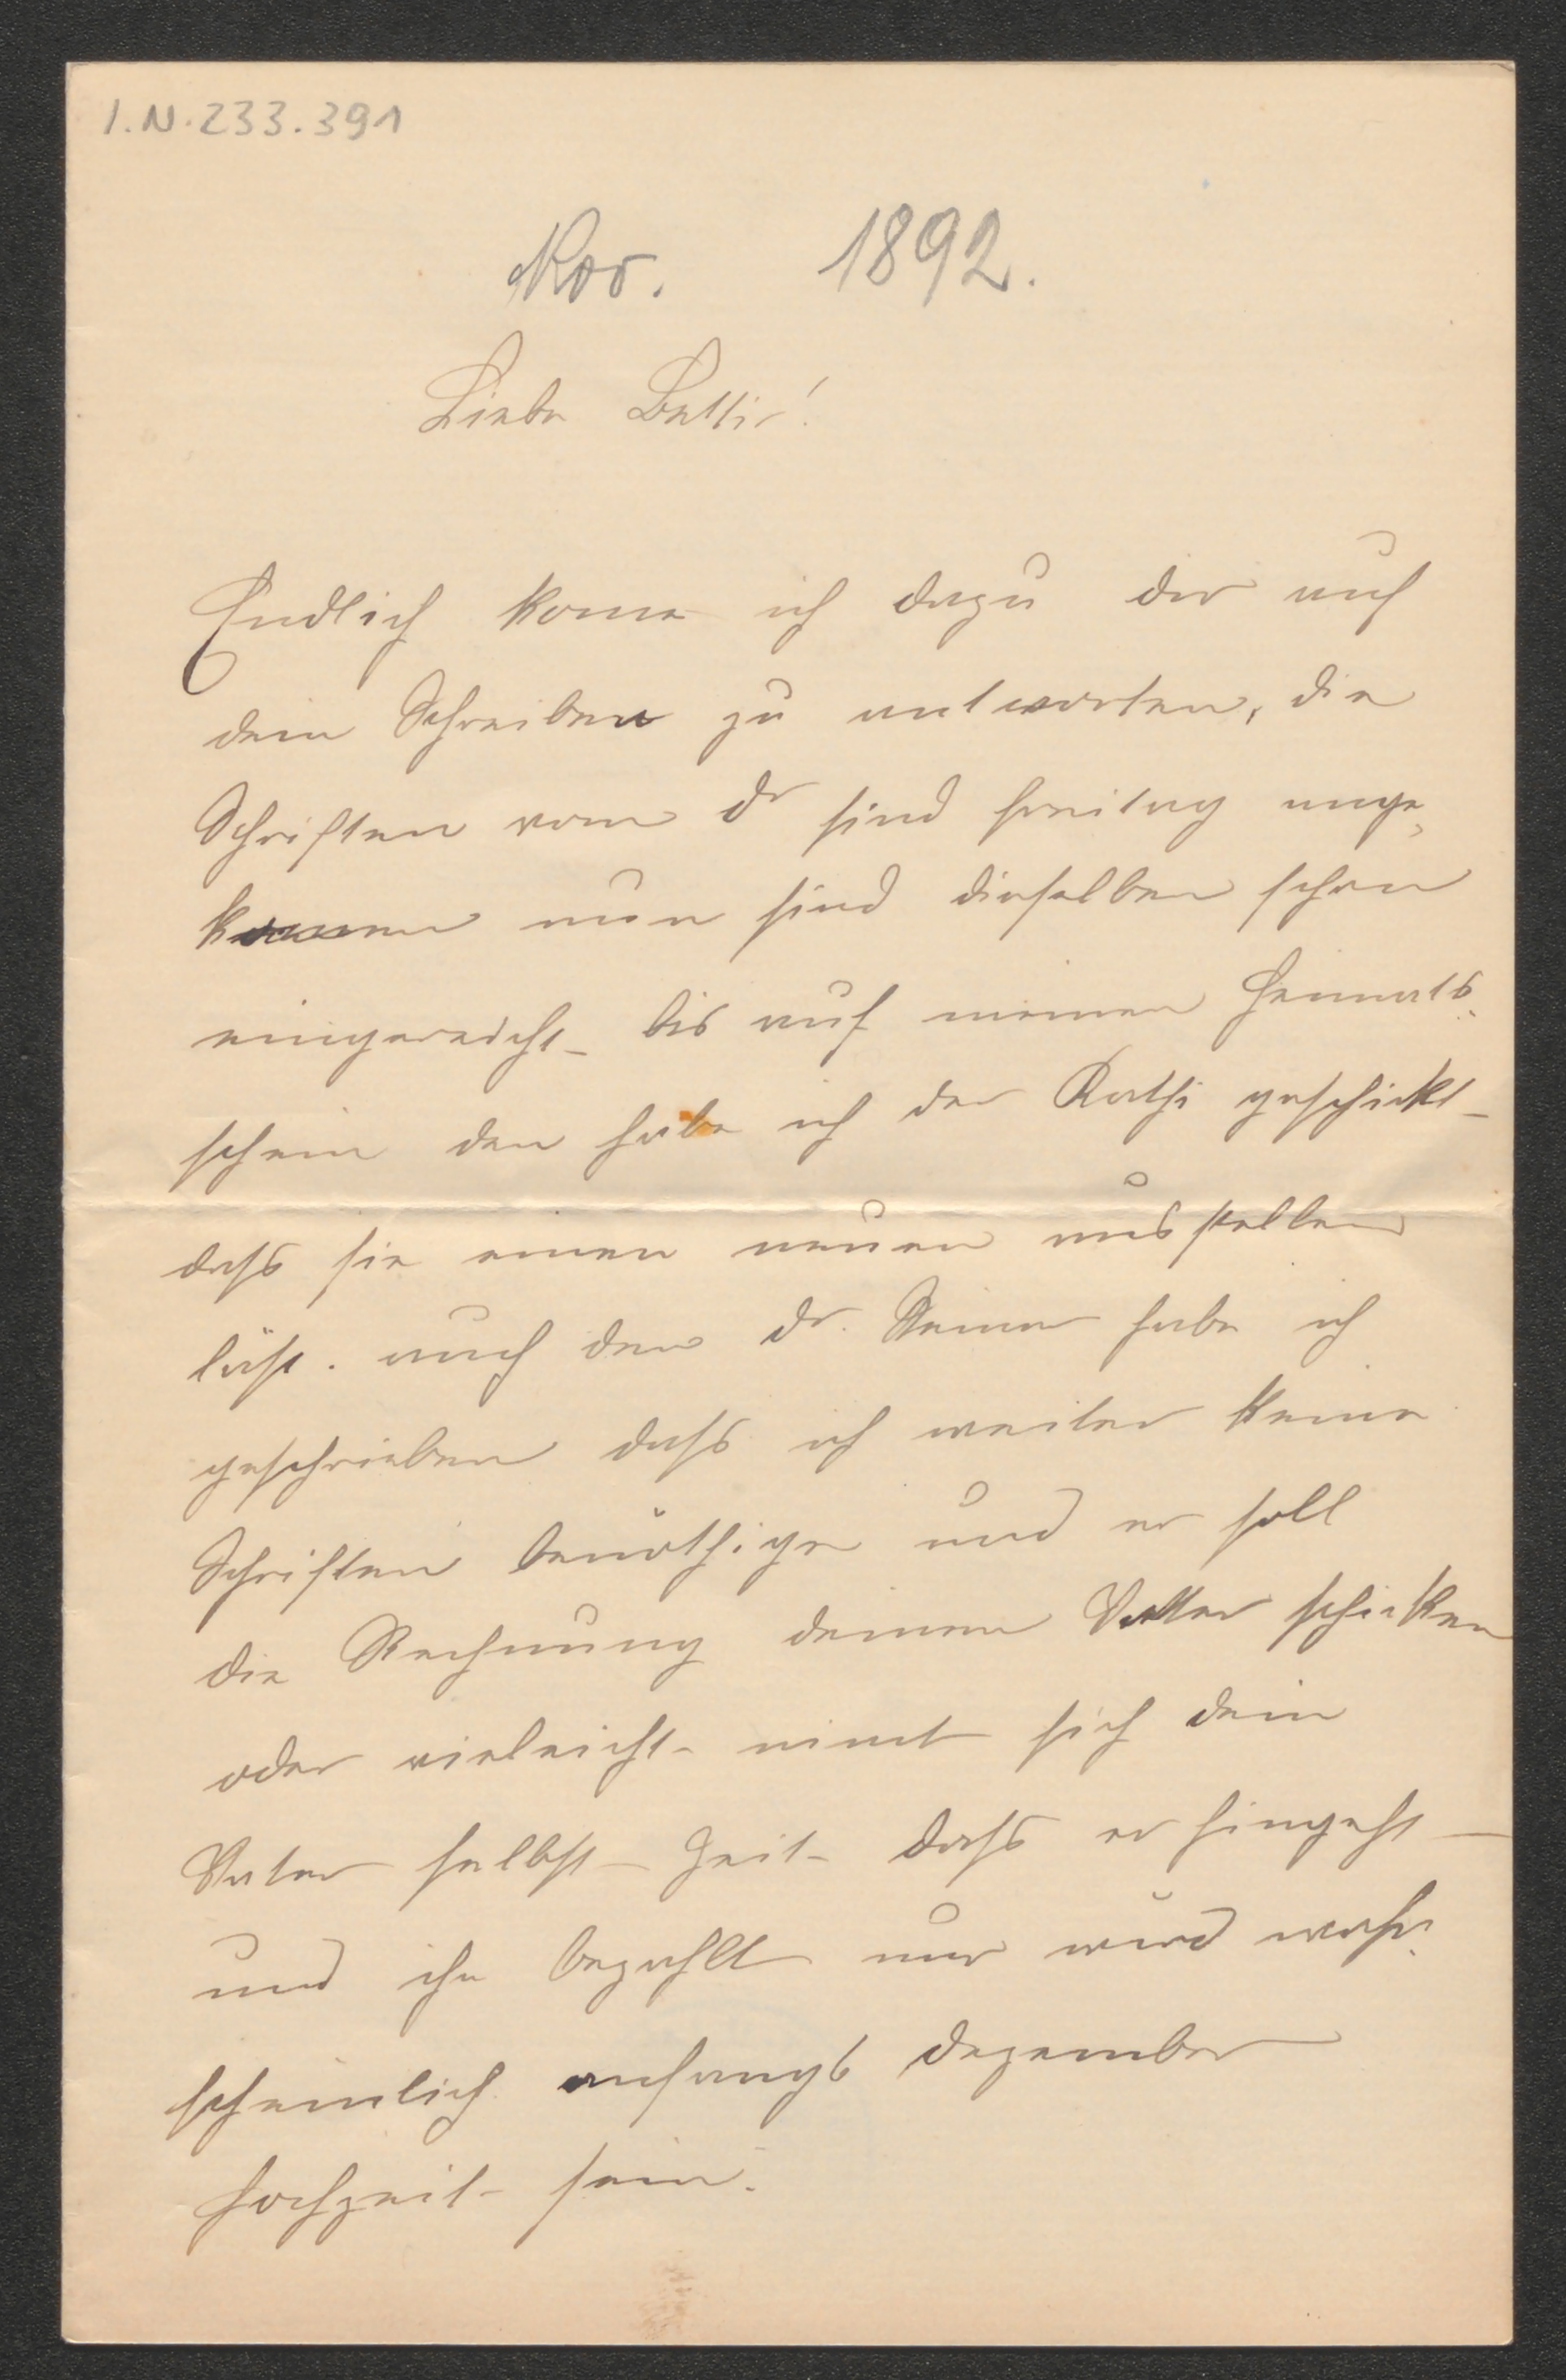 I.N. 233.391
Nov. 1892.
Liebe Bettie!
Endlich kome ich dazu dir auf
dein Schreiben zu antworten, die
Schriften vom Dr sind freitag ange,
kommen nun sind dieselben schon
eingereicht bis auf meinen Heimats,
schein den habe ich der Kathi geschickt
dass sie einen neuen ausstellen
läßt. auch den Dr. Steiner habe ich
geschrieben dass ich weiter keine
Schriften benöthige und er soll
die Rechnung deinen Vatter schicken
oder vieleicht nimt sich dein
Vater selbst Zeit dass er hingeht
und ihn bezahlt nur wird wahr,
scheinlich anfangs Dezember
Hochzeit sein.